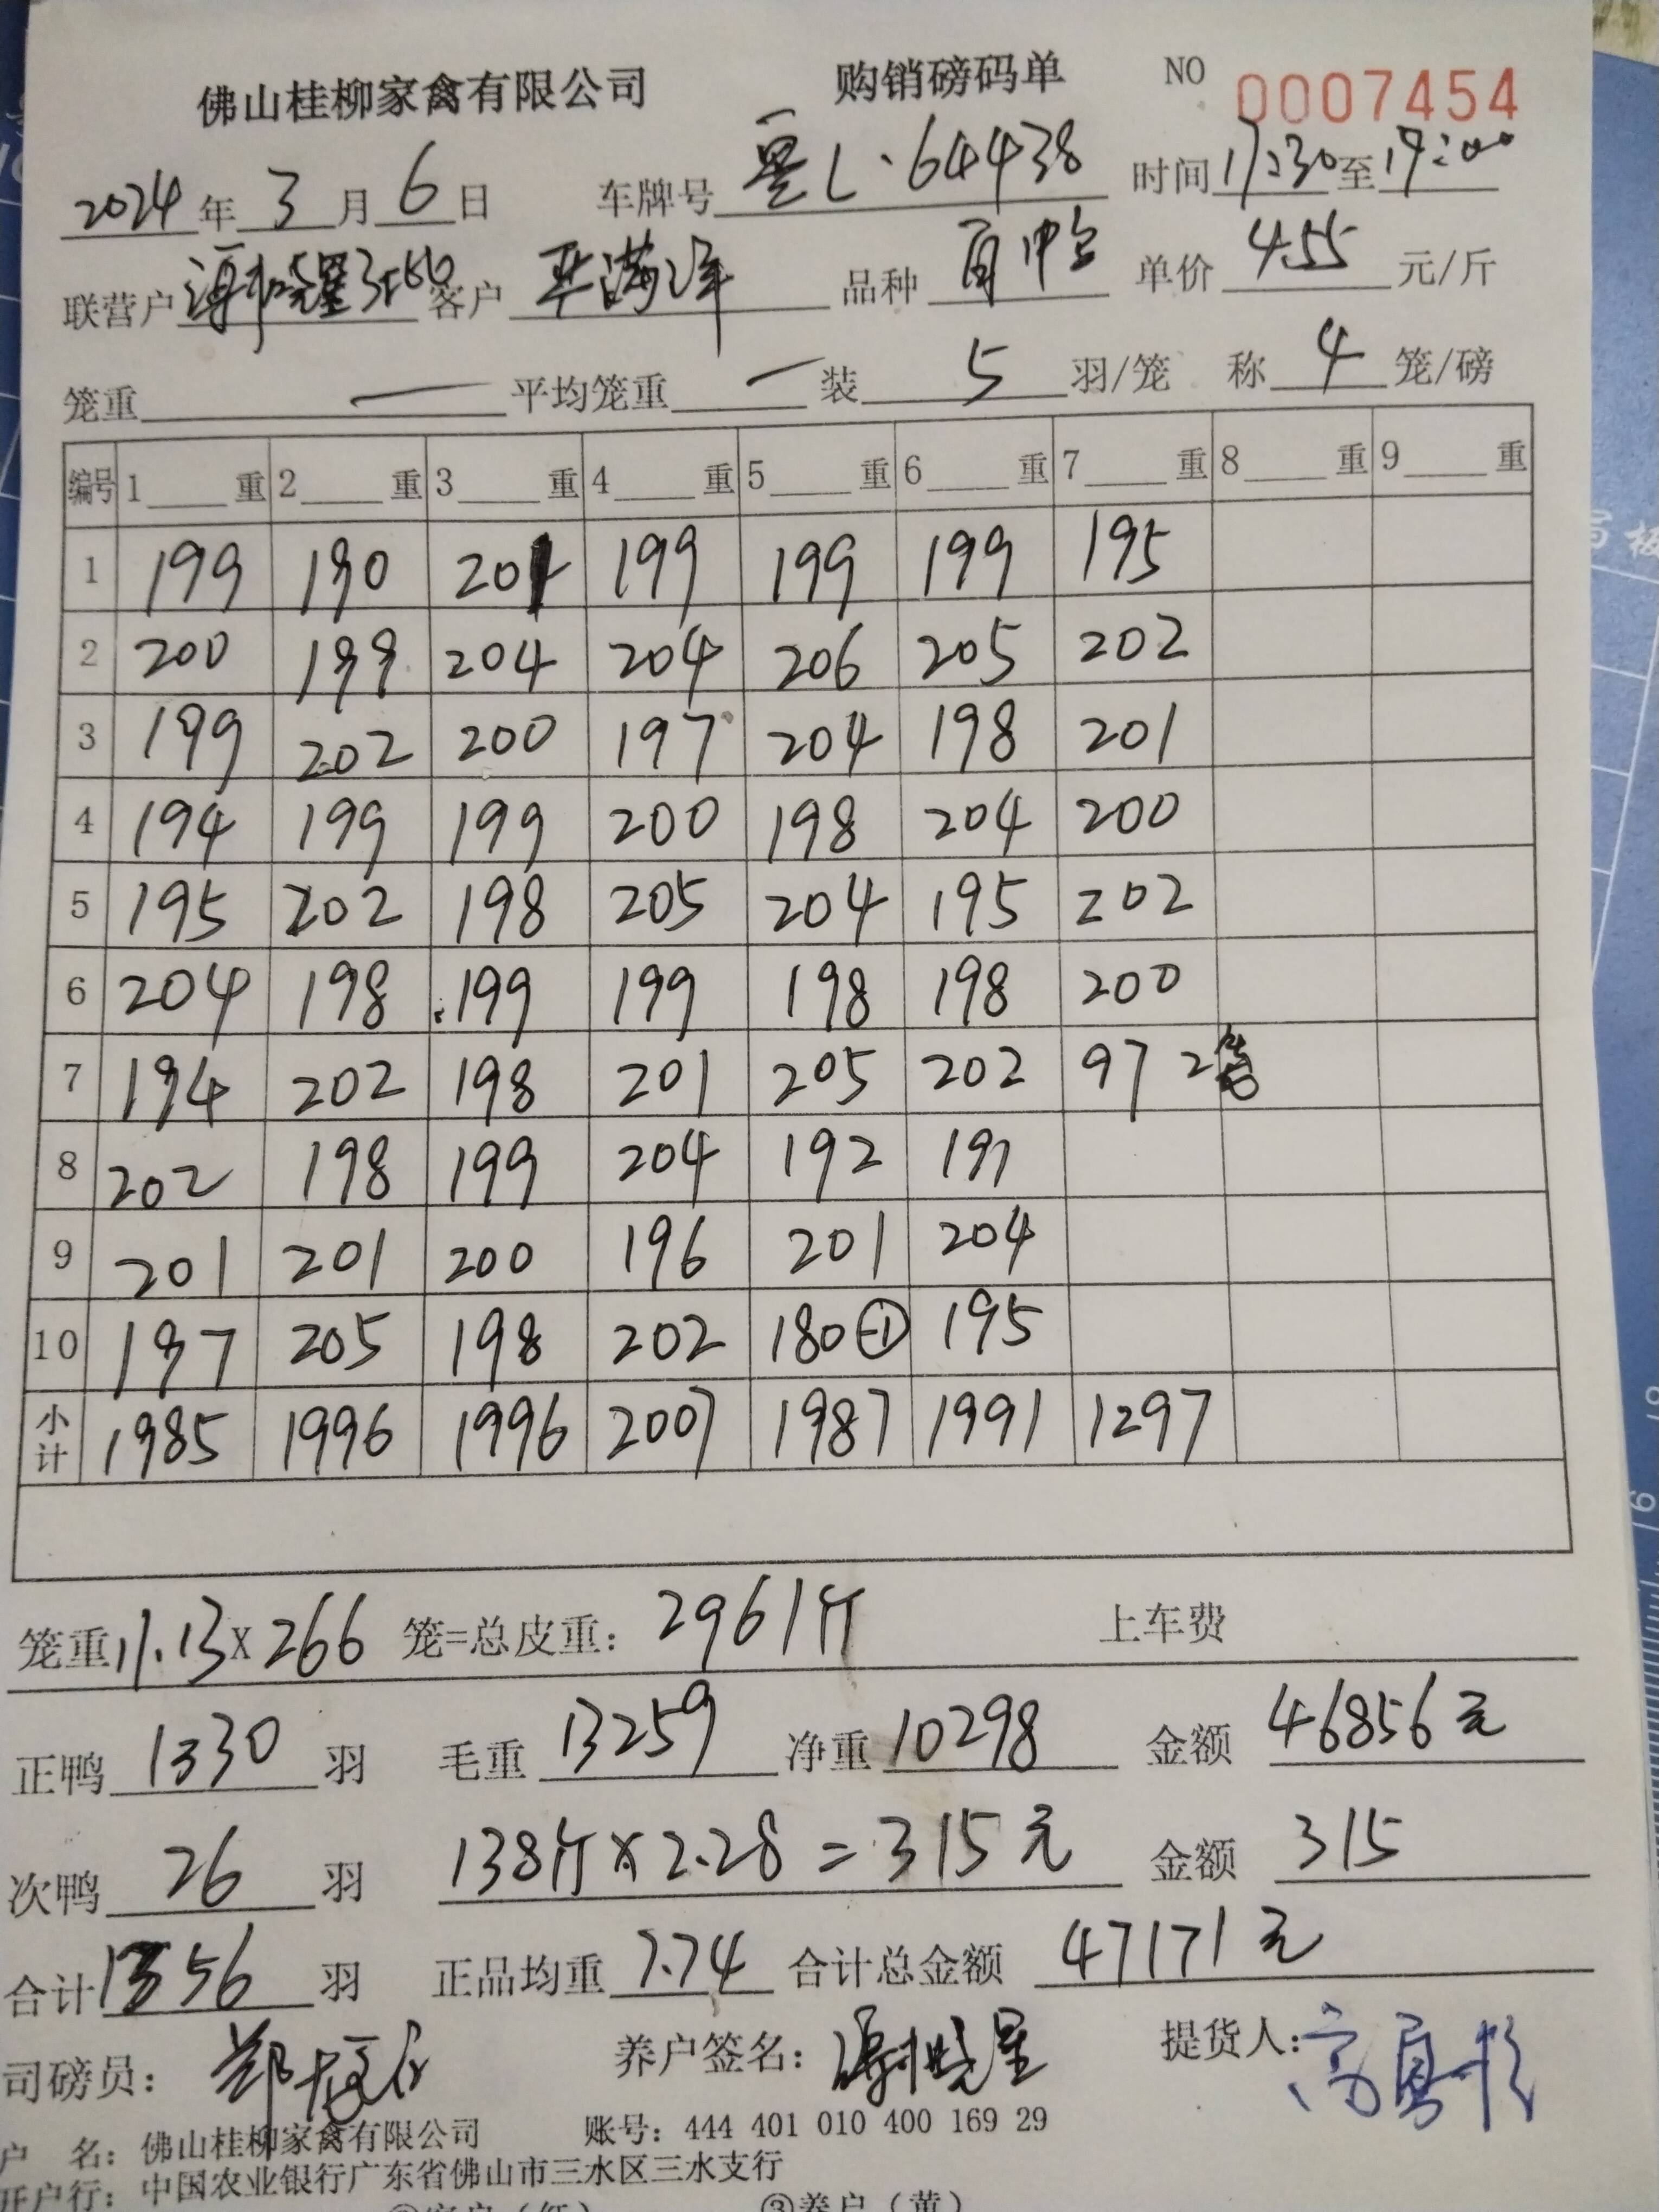 佛山桂柳家禽有限公司 购销磅码单 NO 0007454
2024年3月6日 车牌号 粤L·64438 时间17:30至19:00
联营户 客户 品种 单价4.55元/斤
笼重 一 平均笼重 一 装 5 羽/笼 称 4 笼/磅
编号 1 重 2 重 3 重 4 重 5 重 6 重 7 重 8 重 9 重
1 199 190 201 199 199 199 195
2 200 199 204 204 206 205 202
3 199 202 200 197 204 198 201
4 194 199 199 200 198 204 200
5 195 202 198 205 204 195 202
6 204 198 199 199 198 198 200
7 194 202 198 201 205 202 97 2笼
8 202 198 199 204 192 191
9 201 201 200 196 201 204
10 197 205 198 202 180 -1 195
小计 1985 1996 1996 2007 1987 1991 1297
笼重11.13X266 笼=总皮重：2961斤 上车费
正鸭1330羽 毛重13259 净重10298 金额46856元
次鸭26羽 138斤×2.28=315元 金额315
合计1356羽 正品均重7.74 合计总金额47171元
司磅员： 养户签名： 提货人：
户 名：佛山桂柳家禽有限公司 账号：444 401 010 400 169 29
开户行：中国农业银行广东省佛山市三水区三水支行
②客户（红） ③养户（黄）